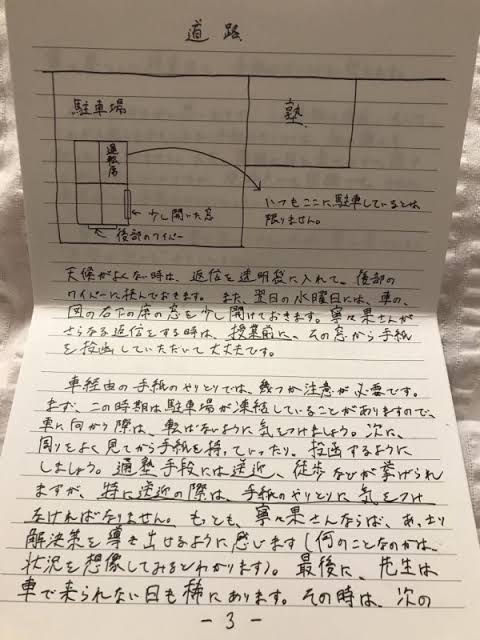 道路
駐車場
塾
運転席
←少し開いた窓
後部のワイパー
いつもここに駐車しているとは
限りません。
天候がよくない時は、返信を透明袋に入れて、後部の
ワイパーに挟んでおきます。また、翌日の水曜日には、車の、
図の右下の席の窓を少し開けておきます。寧々果さんが
さらなる返信をする時は、授業前に、その窓から手紙
を投函していただいて大丈夫です。
車経由の手紙のやりとりでは、幾つか注意が必要です。
まず、この時期は駐車場が凍結していることがありますので、
車に向かう際は、転ばないように気をつけましょう。次に、
周りをよく見てから手紙を持っていったり、投函するように
しましょう。通塾手段には送迎、徒歩などが挙げられ
ますが、特に送迎の際は、手紙のやりとりに気をつけ
なければなりません。もっとも、寧々果さんならば、あっさり
解決策を導き出せるように感じます(何のことなのかは、
状況を想像してみるとわかります)。最後に、先生は
車で来られない日も稀にあります。その時は、次の
-3-